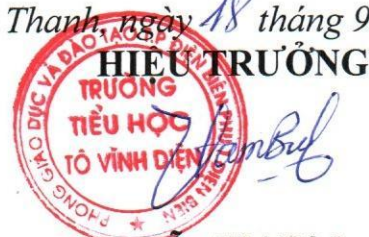 Thanh, ngày 18 tháng 9
HIỆU TRƯỞNG
PHÒNG GIÁO DỤC VÀ ĐÀO TẠO TP ĐIỆN BIÊN PHỦ ĐIỆN BIÊN
TRƯỜNG
TIỂU HỌC
TÔ VĨNH DIỆN